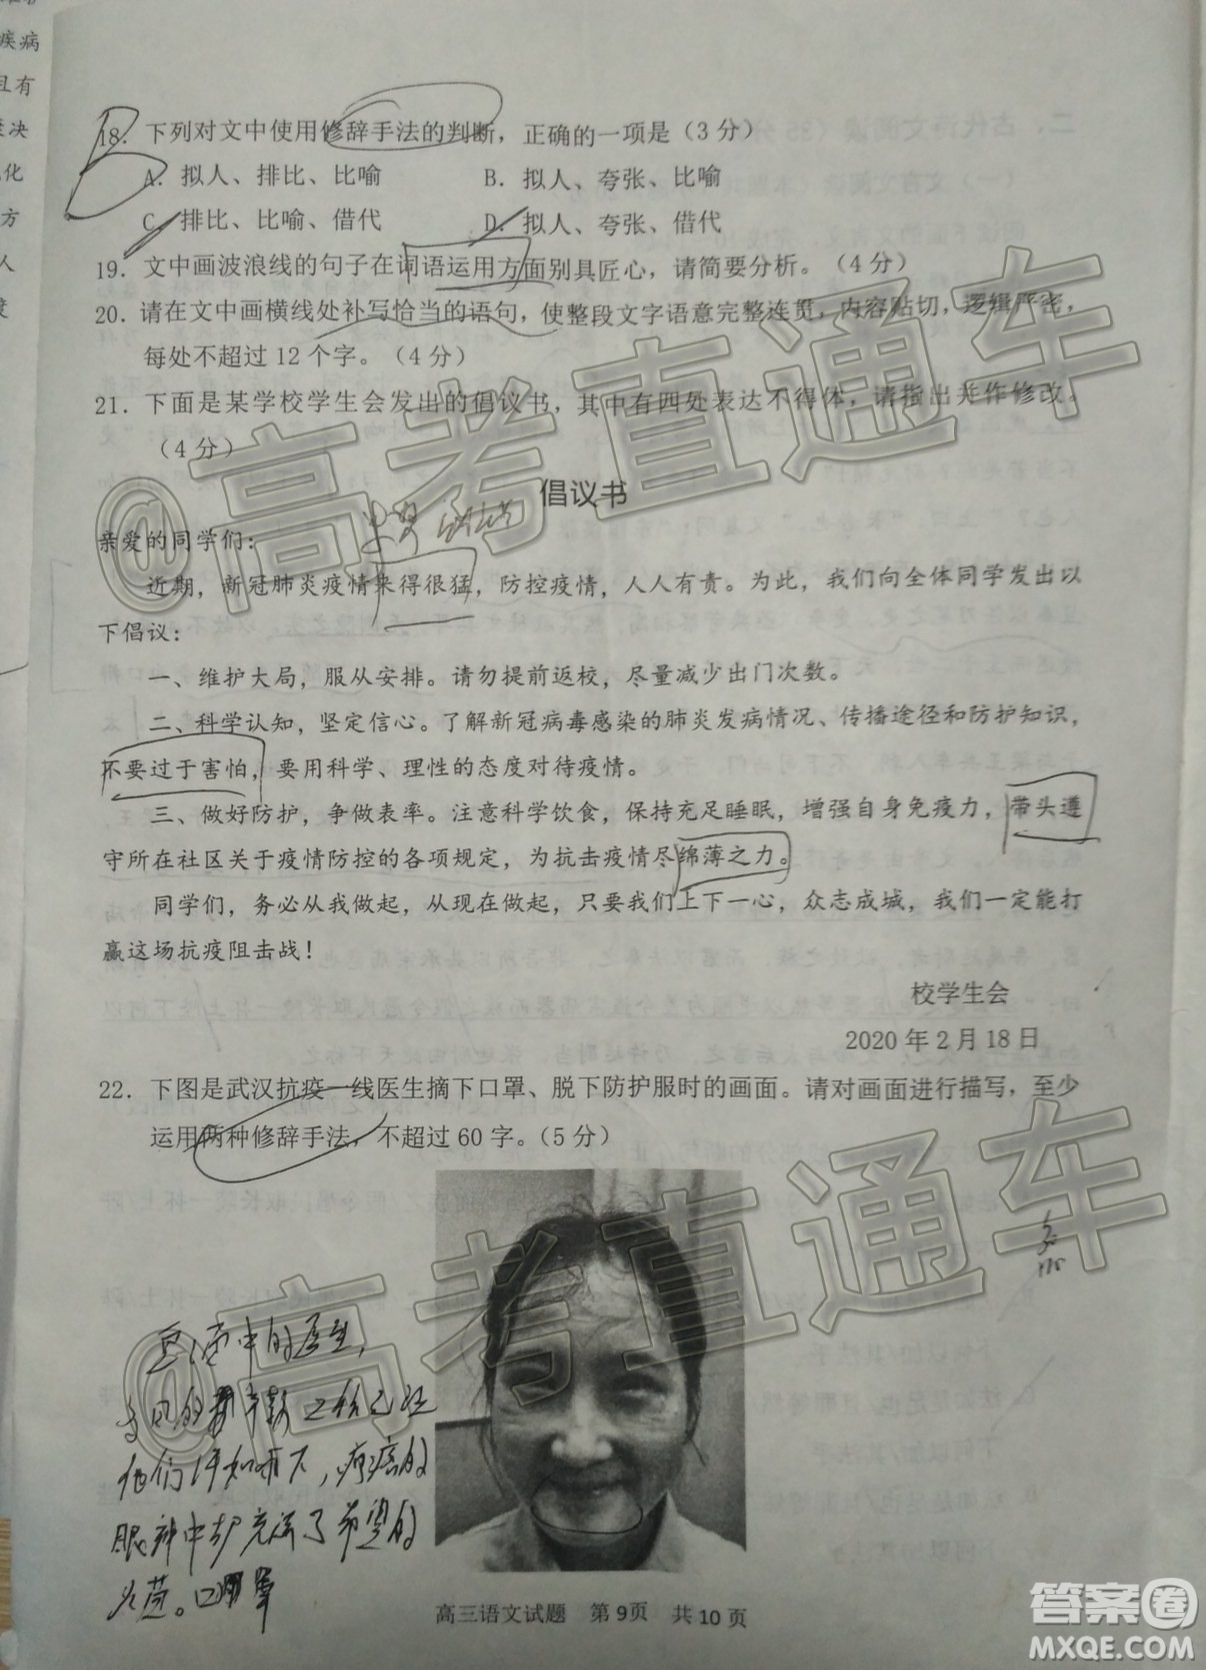 疾病
且有
决
化
方
人
18. 下列对文中使用修辞手法的判断，正确的一项是（3 分）
A. 拟人、排比、比喻 B. 拟人、夸张、比喻
C. 排比、比喻、借代 D. 拟人、夸张、借代
19. 文中画波浪线的句子在词语运用方面别具匠心，请简要分析。（4 分）
20. 请在文中画横线处补写恰当的语句，使整段文字语意完整连贯，内容贴切，逻辑严密，
每处不超过 12 个字。（4 分）
21. 下面是某学校学生会发出的倡议书，其中有四处表达不得体，请指出并作修改。
（4 分）
倡议书
亲爱的同学们：
近期，新冠肺炎疫情来得很猛，防控疫情，人人有责。为此，我们向全体同学发出以
下倡议：
一、维护大局，服从安排。请勿提前返校，尽量减少出门次数。
二、科学认知，坚定信心。了解新冠病毒感染的肺炎发病情况、传播途径和防护知识，
不要过于害怕，要用科学、理性的态度对待疫情。
三、做好防护，争做表率。注意科学饮食，保持充足睡眠，增强自身免疫力，带头遵
守所在社区关于疫情防控的各项规定，为抗击疫情尽绵薄之力。
同学们，务必从我做起，从现在做起，只要我们上下一心，众志成城，我们一定能打
赢这场抗疫阻击战！
校学生会
2020 年 2 月 18 日
22. 下图是武汉抗疫一线医生摘下口罩、脱下防护服时的画面。请对画面进行描写，至少
运用两种修辞手法，不超过 60 字。（5 分）
中的医生，
他们
眼神中却充满了希望的
高三语文试题 第 9页 共 10 页
@高考直通车
@高考直通车
答案圈
MXQE.COM